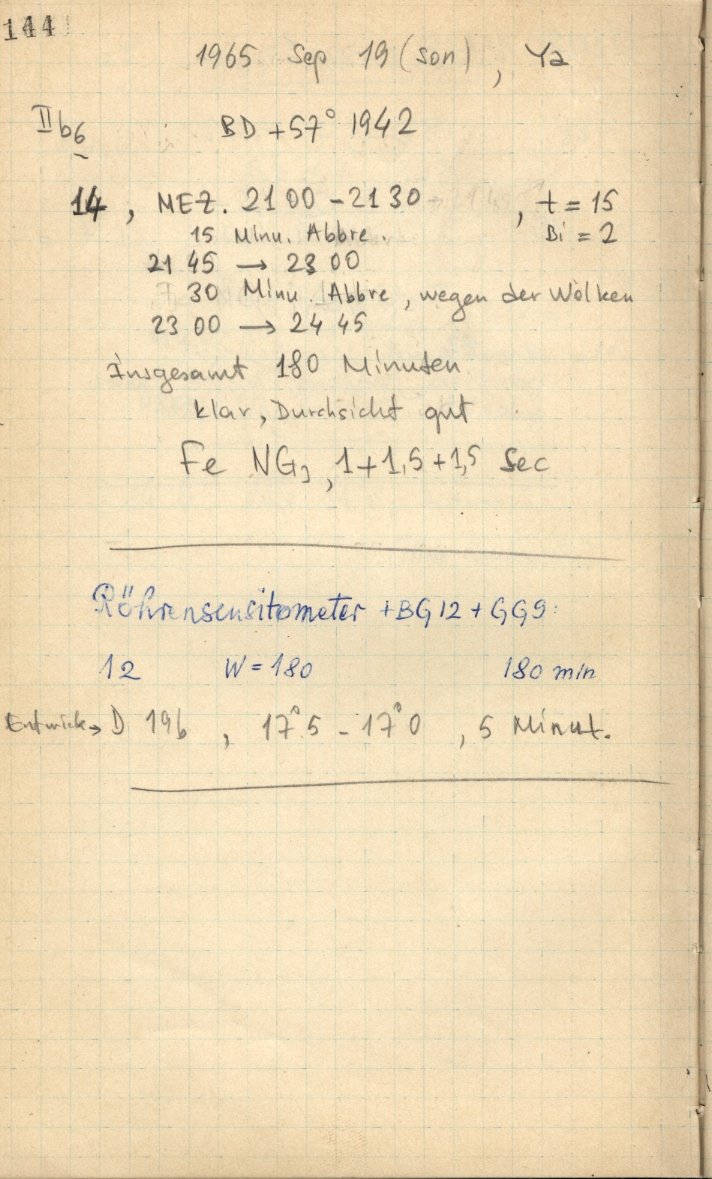 144
1965 Sep 19 (Son), Ya
IIb6 BD +57° 1942
14, MEZ. 21 00 - 21 30, t = 15
15 Minu. Abbre. Bi = 2
21 45 → 23 00
30 Minu. Abbre, wegen der Wolken
23 00 → 24 45
Insgesamt 180 Minuten
klar, Durchsicht gut
Fe NG3, 1+1,5+1,5 Sec
Röhrensensitometer + BG12 + GG9:
12 W = 180 180 min
Entwick → D 196, 17°5 - 17°0, 5 Minut.